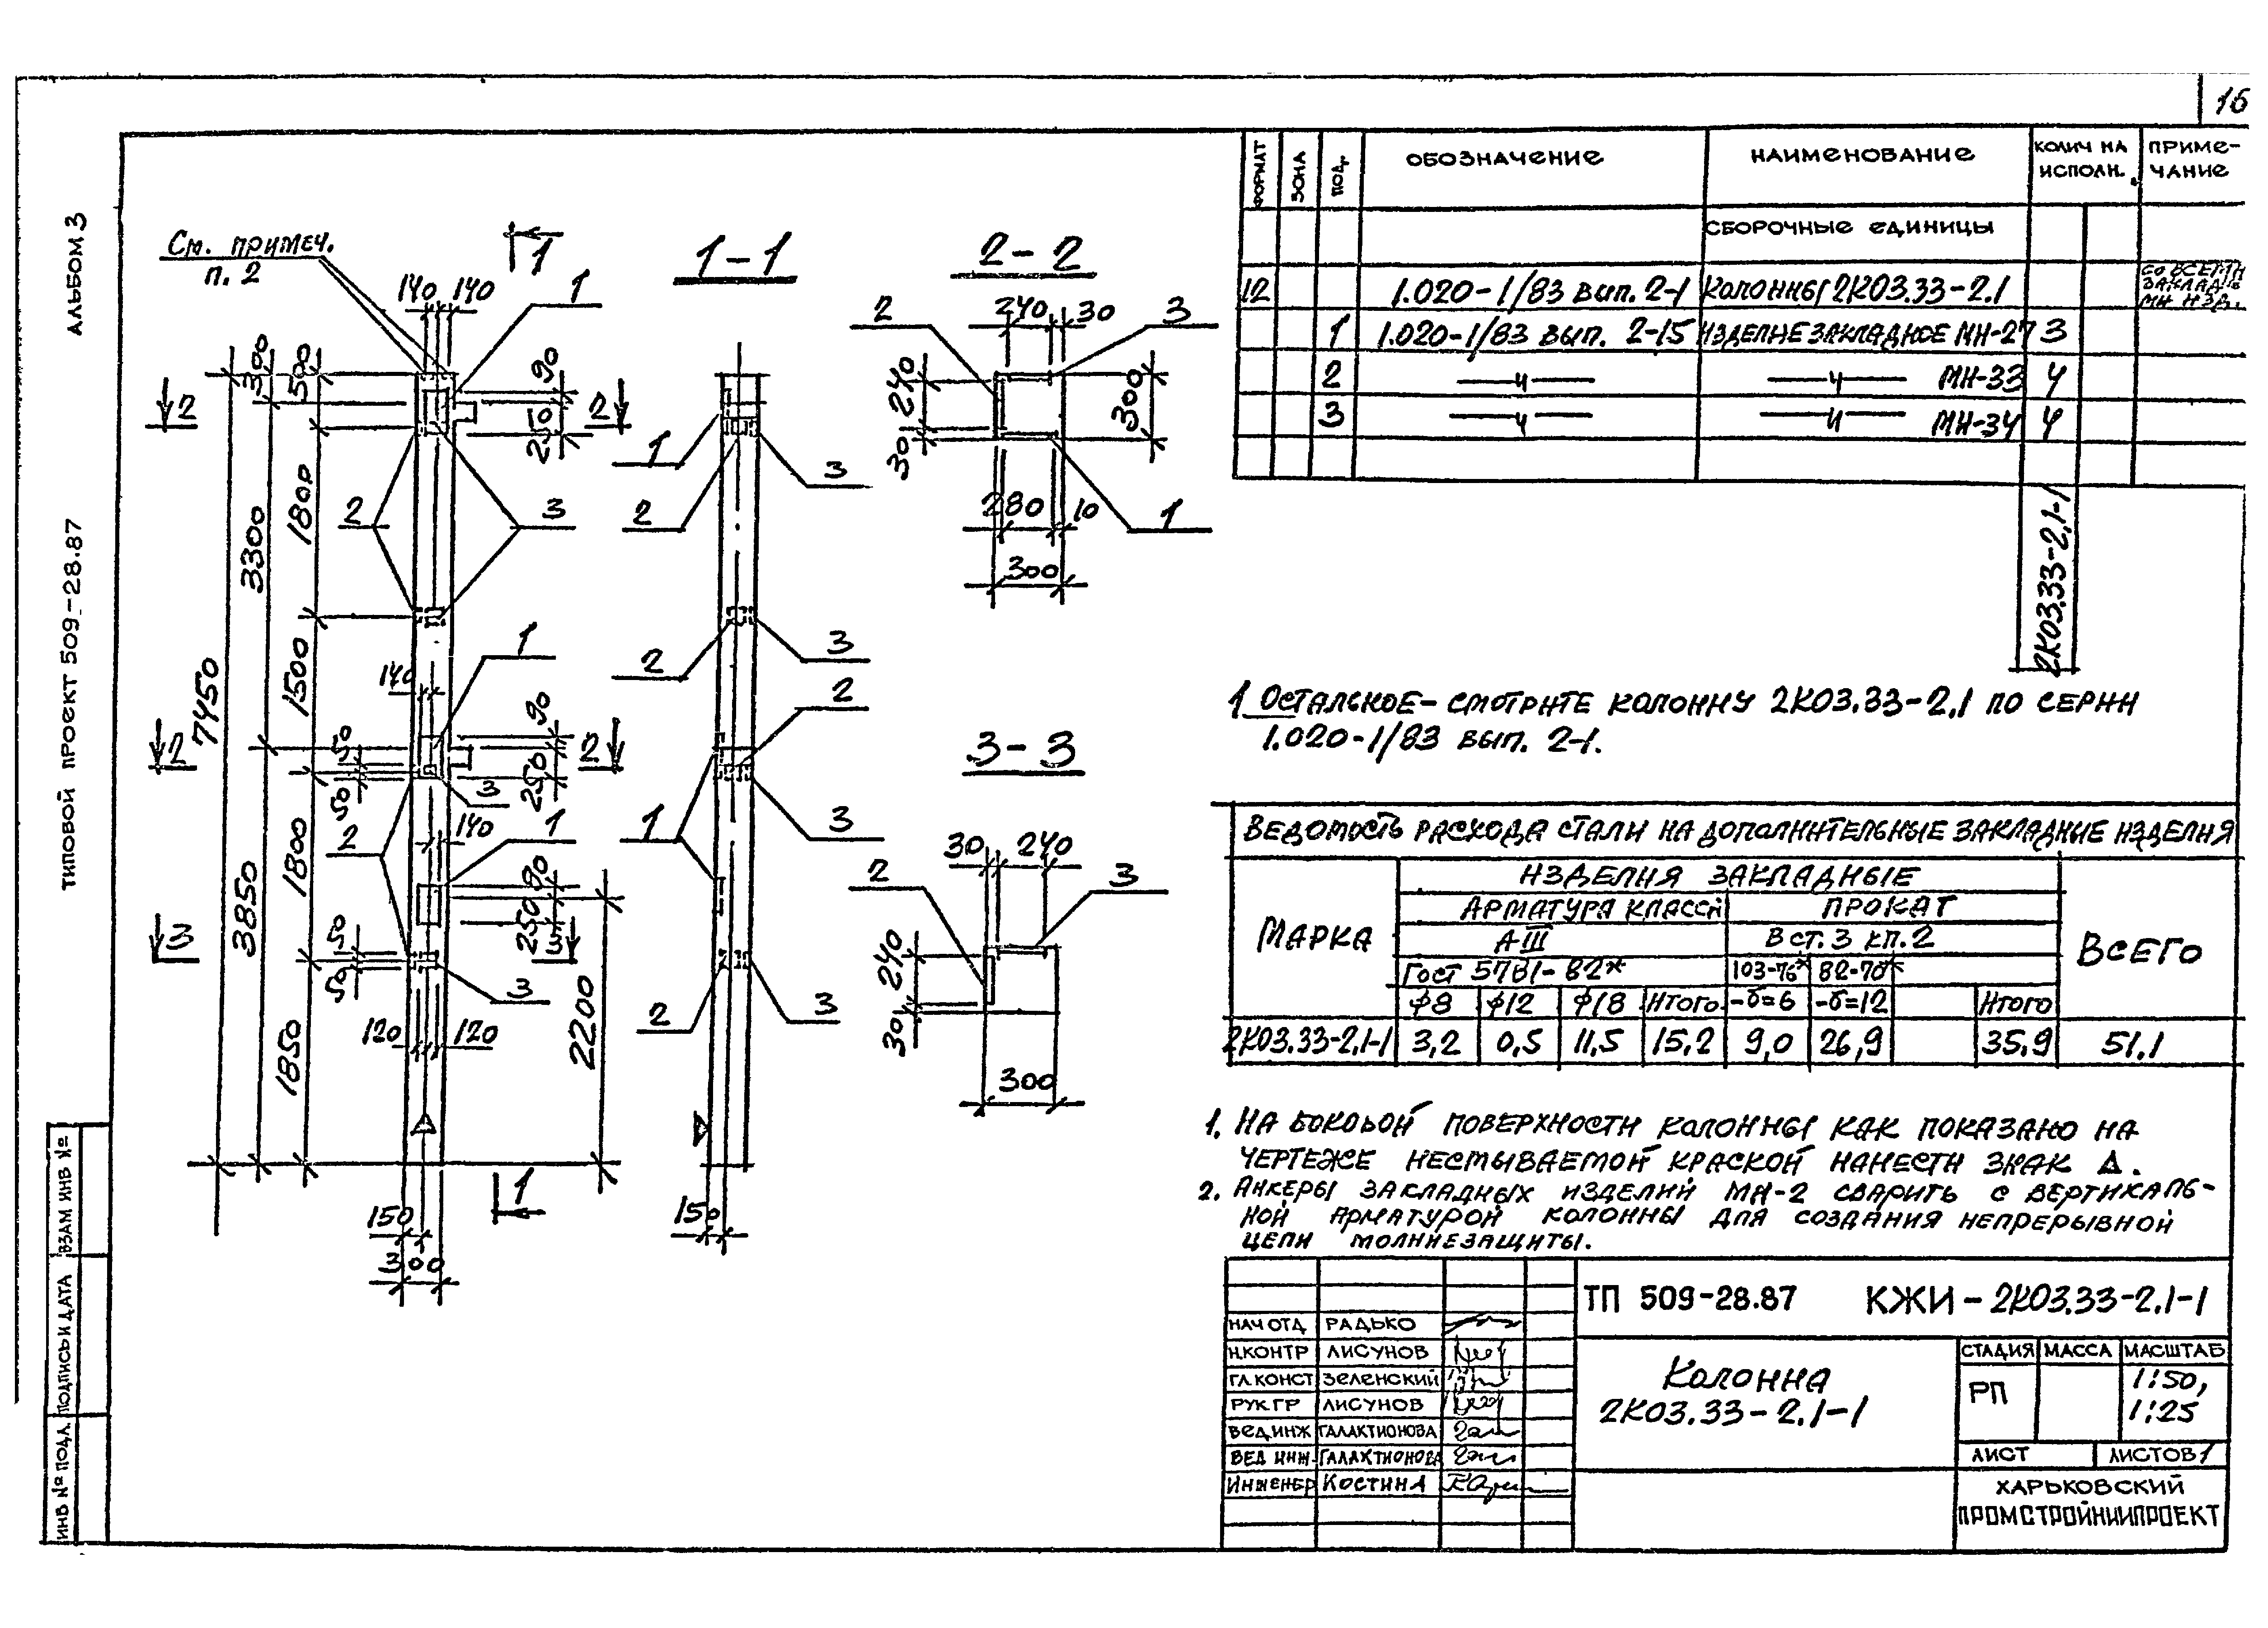 16
АЛЬБОМ 3
ТИПОВОЙ ПРОЕКТ 509-28.87
ИНВ № ПОДЛ. ПОДПИСЬ И ДАТА ВЗАМ ИНВ №
См. примеч.
п. 2
1
140 140
1
300
50
90
250
2 2
7450
3300
1800
2 3
1500
1
140
90
250
50
50
2 2
3
3850
1800
2
140
1
90
250
3 3
50
50
3
120 120
2200
1850
150
300
1
1-1
1
3
2
2
3
2
1
3
2
3
150
2-2
240 30
2 3
240
30
300
280 10
1
300
3-3
30 240
2 3
240
30
300
ФОРМАТ ЗОНА ПОЗ. ОБОЗНАЧЕНИЕ НАИМЕНОВАНИЕ КОЛИЧ НА ИСПОЛН. ПРИМЕ-ЧАНИЕ
СБОРОЧНЫЕ ЕДИНИЦЫ
12 1.020-1/83 вып. 2-1 Колонны 2К03.33-2.1 СО ВСЕМИ ЗАКЛАД-МИ ИЗД.
1 1.020-1/83 вып. 2-15 ИЗДЕЛИЕ ЗАКЛАДНОЕ МН-27 3
2 —"— —"— МН-33 4
3 —"— —"— МН-34 4
2К03.33-2.1-1
1 ОСТАЛЬНОЕ- СМОТРИТЕ КОЛОННУ 2К03.33-2.1 ПО СЕРИИ
1.020-1/83 вып. 2-1.
ВЕДОМОСТЬ РАСХОДА СТАЛИ НА ДОПОЛНИТЕЛЬНЫЕ ЗАКЛАДНЫЕ ИЗДЕЛИЯ
МАРКА ИЗДЕЛИЯ ЗАКЛАДНЫЕ ВСЕГО
АРМАТУРА КЛАССА ПРОКАТ
АIII В ст. 3 кп. 2
ГОСТ 5781-82* 103-76* 82-70*
ф8 ф12 ф18 Итого -δ=6 -δ=12 Итого
2К03.33-2.1-1 3,2 0,5 11,5 15,2 9,0 26,9 35,9 51.1
1. НА БОКОВОЙ ПОВЕРХНОСТИ КОЛОННЫ КАК ПОКАЗАНО НА
ЧЕРТЕЖЕ НЕСМЫВАЕМОЙ КРАСКОЙ НАНЕСТИ ЗНАК Δ.
2. АНКЕРЫ ЗАКЛАДНЫХ ИЗДЕЛИЙ МН-2 СВАРИТЬ С ВЕРТИКАЛЬ-
НОЙ АРМАТУРОЙ КОЛОННЫ ДЛЯ СОЗДАНИЯ НЕПРЕРЫВНОЙ
ЦЕПИ МОЛНИЕЗАЩИТЫ.
ТП 509-28.87 КЖИ-2К03.33-2.1-1
НАЧ ОТД РАДЬКО
Н.КОНТР ЛИСУНОВ
ГЛ.КОНСТ ЗЕЛЕНСКИЙ
РУК.ГР ЛИСУНОВ
ВЕД.ИНЖ ГАЛАКТИОНОВА
ВЕД ИНЖ. ГАЛАКТИОНОВА
ИНЖЕНЕР КОСТИНА
Колонна
2К03.33-2.1-1
СТАДИЯ МАССА МАСШТАБ
РП 1:50,
1:25
ЛИСТ ЛИСТОВ 1
ХАРЬКОВСКИЙ
ПРОМСТРОЙНИИПРОЕКТ